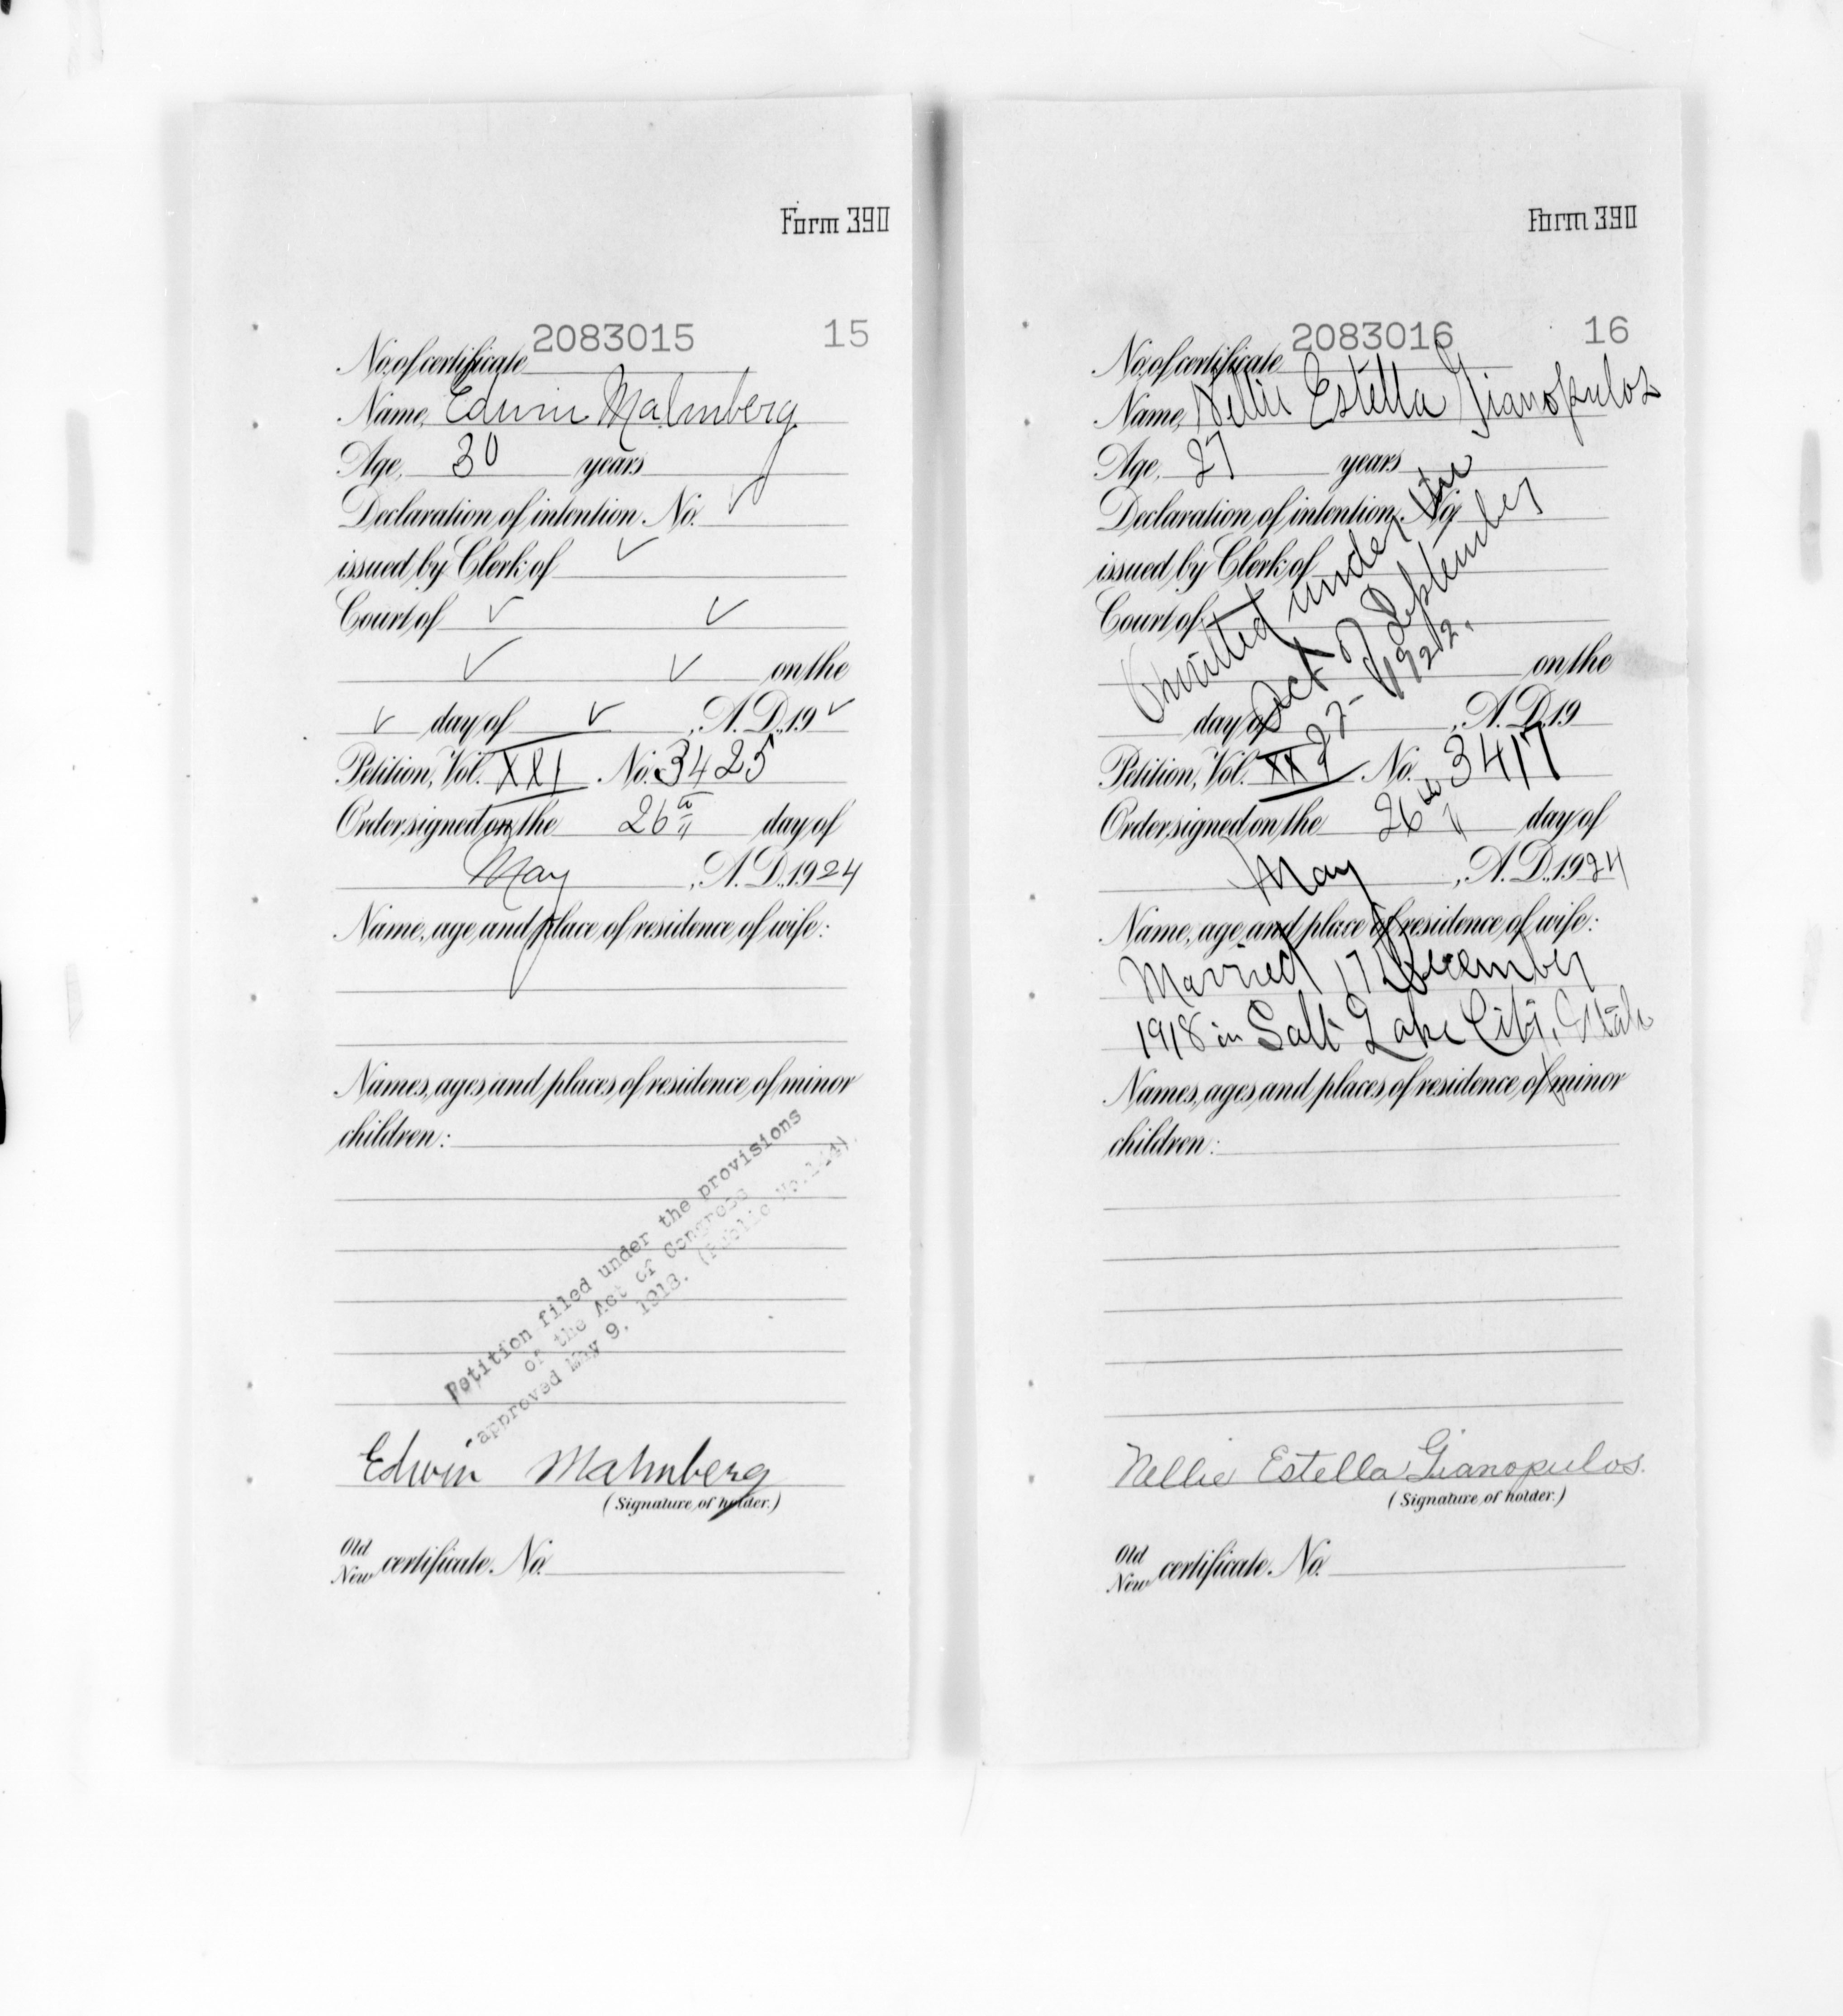 Form 390
2083015 15
No. of certificate
Name, Edwin Malmberg
Age, 30 years
Declaration of intention, No. ✓
issued by Clerk of ✓
Court of ✓ ✓
✓ ✓ on the
✓ day of ✓, A.D., 19 ✓
Petition, Vol. XXI No. 3425
Order signed on the 26th day of
May, A.D., 1924
Name, age, and place of residence of wife:
Names, ages, and places of residence of minor
children:
Petition filed under the provisions
of the Act of Congress
approved May 9, 1918. (Public No. 144)
Edwin Malmberg
(Signature of holder.)
Old
New certificate, No.
Form 390
2083016 16
No. of certificate
Name, Nellie Estella Gianopulos
Age, 27 years
Declaration of intention, No.
issued by Clerk of
Court of
on the
day of, A.D., 19
Omitted under the
Act of September
22-1922.
Petition, Vol. XXI No. 3417
Order signed on the 26th day of
May, A.D., 1924
Name, age, and place of residence of wife:
Married 17 December
1918 in Salt Lake City, Utah
Names, ages, and places of residence of minor
children:
Nellie Estella Gianopulos.
(Signature of holder.)
Old
New certificate, No.